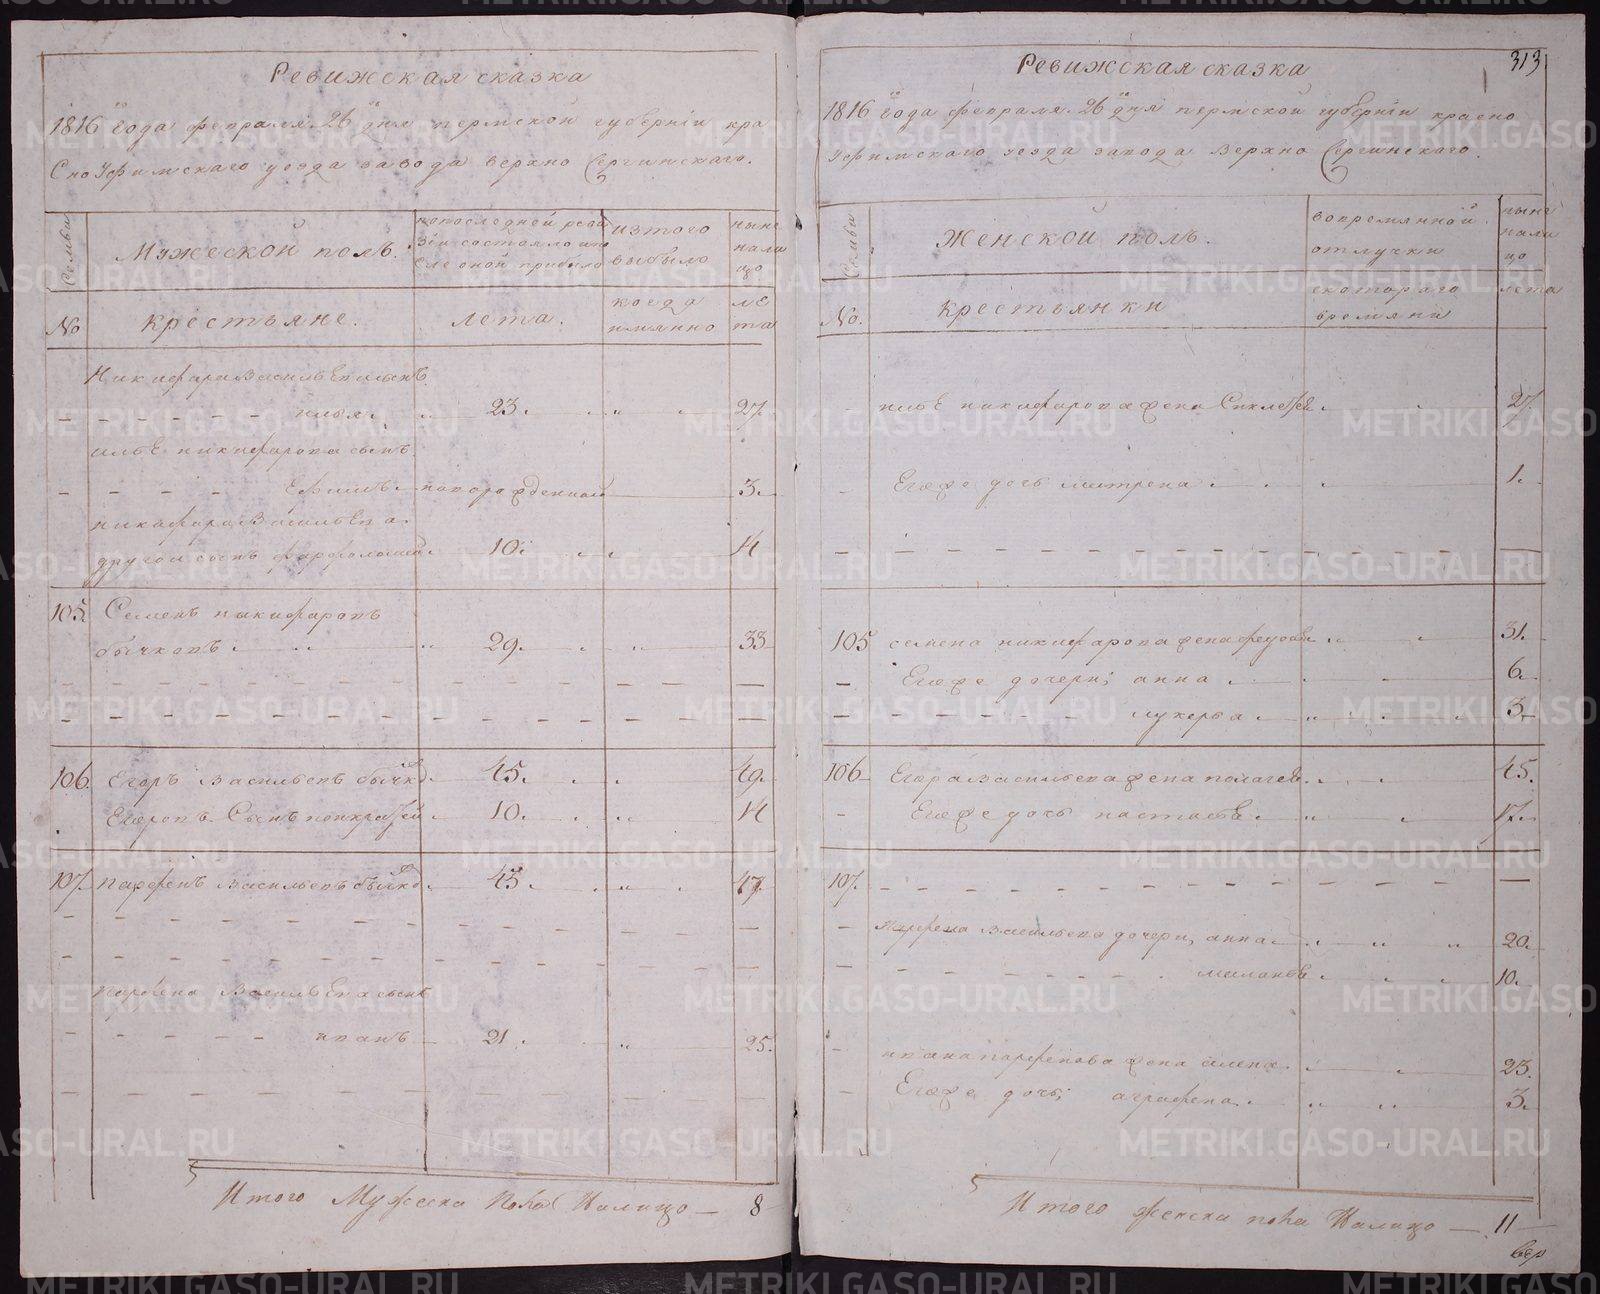 Ревижская сказка
1816 года февраля 26 дня пермской губернiи кра
сноуфимскаго уезда завода верхно Сергинскаго.
Семьи
Мужеской полъ.
попоследней реви
зiи состояло ипо
сле оной прибыло
изтого
выбыло
ныне
нали
цо
No
крестьяне.
лета.
когда
имянно
ле
та
Никифара Васильева сынъ
илья 23. 27.
ильи никифарова сынъ
Ефимъ новорожденной 3.
никифара Васильева
другой сынъ 10. 14
105. Семенъ никифаровъ
бычковъ 29. 33
106. Егоръ Васильевъ бычко 45. 49.
Егоровъ Сынъ понкратей 10. 14
107. парфенъ Васильевъ бычко 43. 47.
парфена Васильева сынъ
иванъ 21. 25.
Итого Мужеска пола Налицо 8
313
Ревижская сказка
1816 года февраля 26 дня пермской губернiи красно
уфимскаго уезда завода Верхно Сергинскаго.
Семьи
Женской полъ.
вовремянной
отлучки
ныне
нали
цо
No.
крестьянки
скотораго
времяни
лета
ильи никифарова жена 27.
Егоже дочь матрена 1.
105 семена никифарова жена 31.
Егоже дочери; анна 6.
лукерья 3.
106 Егора Васильева жена 45.
Егоже дочь настасья 17.
107.
парфена Васильева дочери, анна 20.
маланья 10.
ивана парфенова жена алена 23.
Егоже дочь; аграфена 3.
Итого женска пола Налицо 11
вер